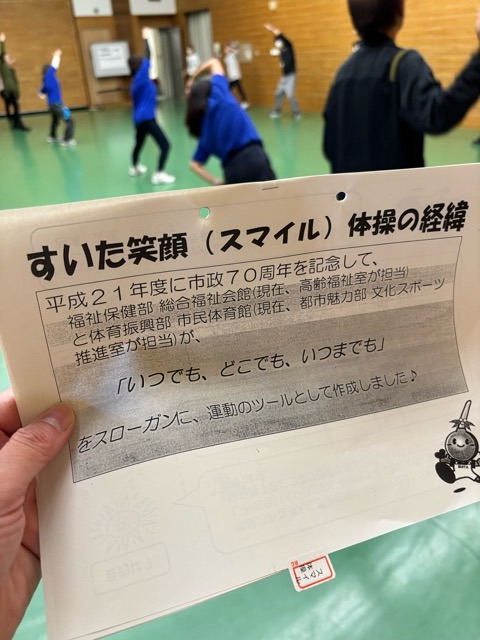 すいた笑顔（スマイル）体操の経緯
平成２１年度に市政７０周年を記念して、
福祉保健部 総合福祉会館(現在、高齢福祉室が担当)
と体育振興部 市民体育館(現在、都市魅力部 文化スポーツ
推進室が担当)が、
「いつでも、どこでも、いつまでも」
をスローガンに、運動のツールとして作成しました♪
スマイル
体操